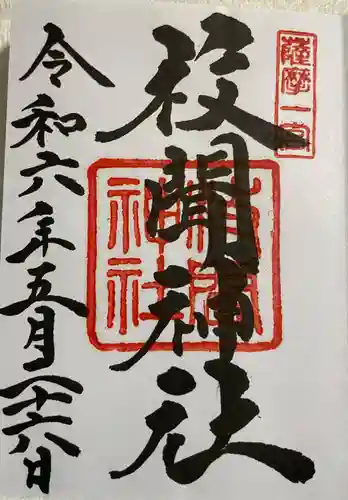 薩摩一宮
枚聞神社
令和六年五月二十六日